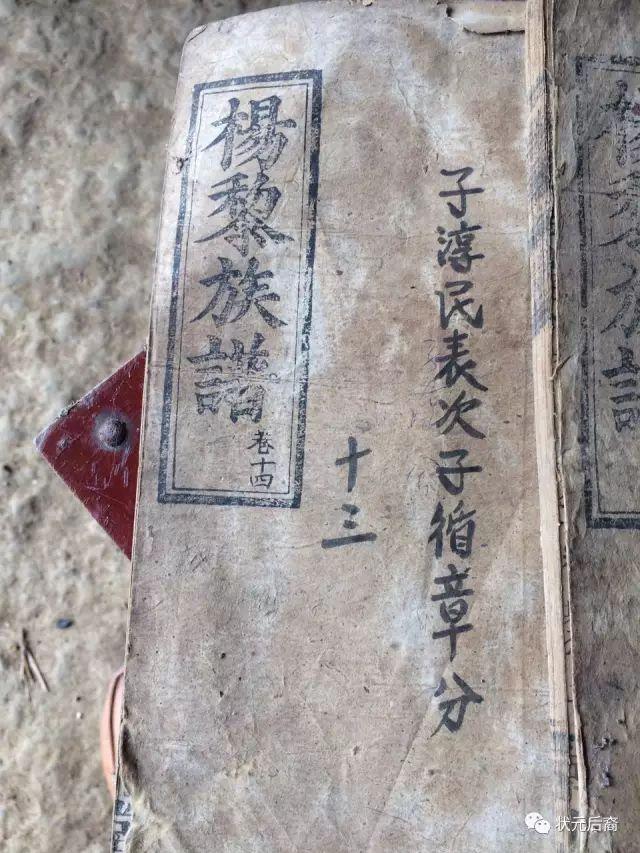 子淳民表次子循章分
十三
楊黎族譜
卷十四
楊黎族譜
状元后裔